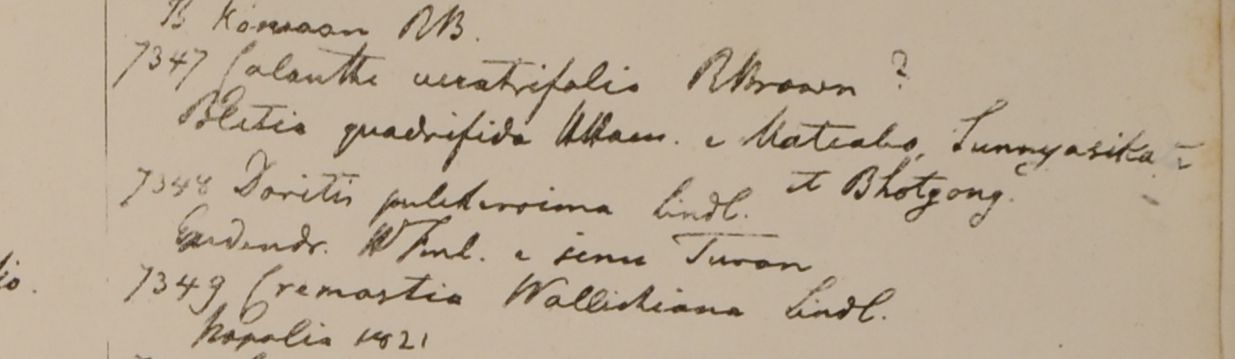 B Kamaon RB.
7347 Calanthe veratrifolia RBrown ?
Bletia quadrifida e Matcabo, Sunnyasika
et Bhotgong.
7348 Doritis pulcherrima Lindl.
Epidendr. Finl. e sinu Turon
7349 Cremastia Wallichiana Lindl.
Napalia 1821
lio.